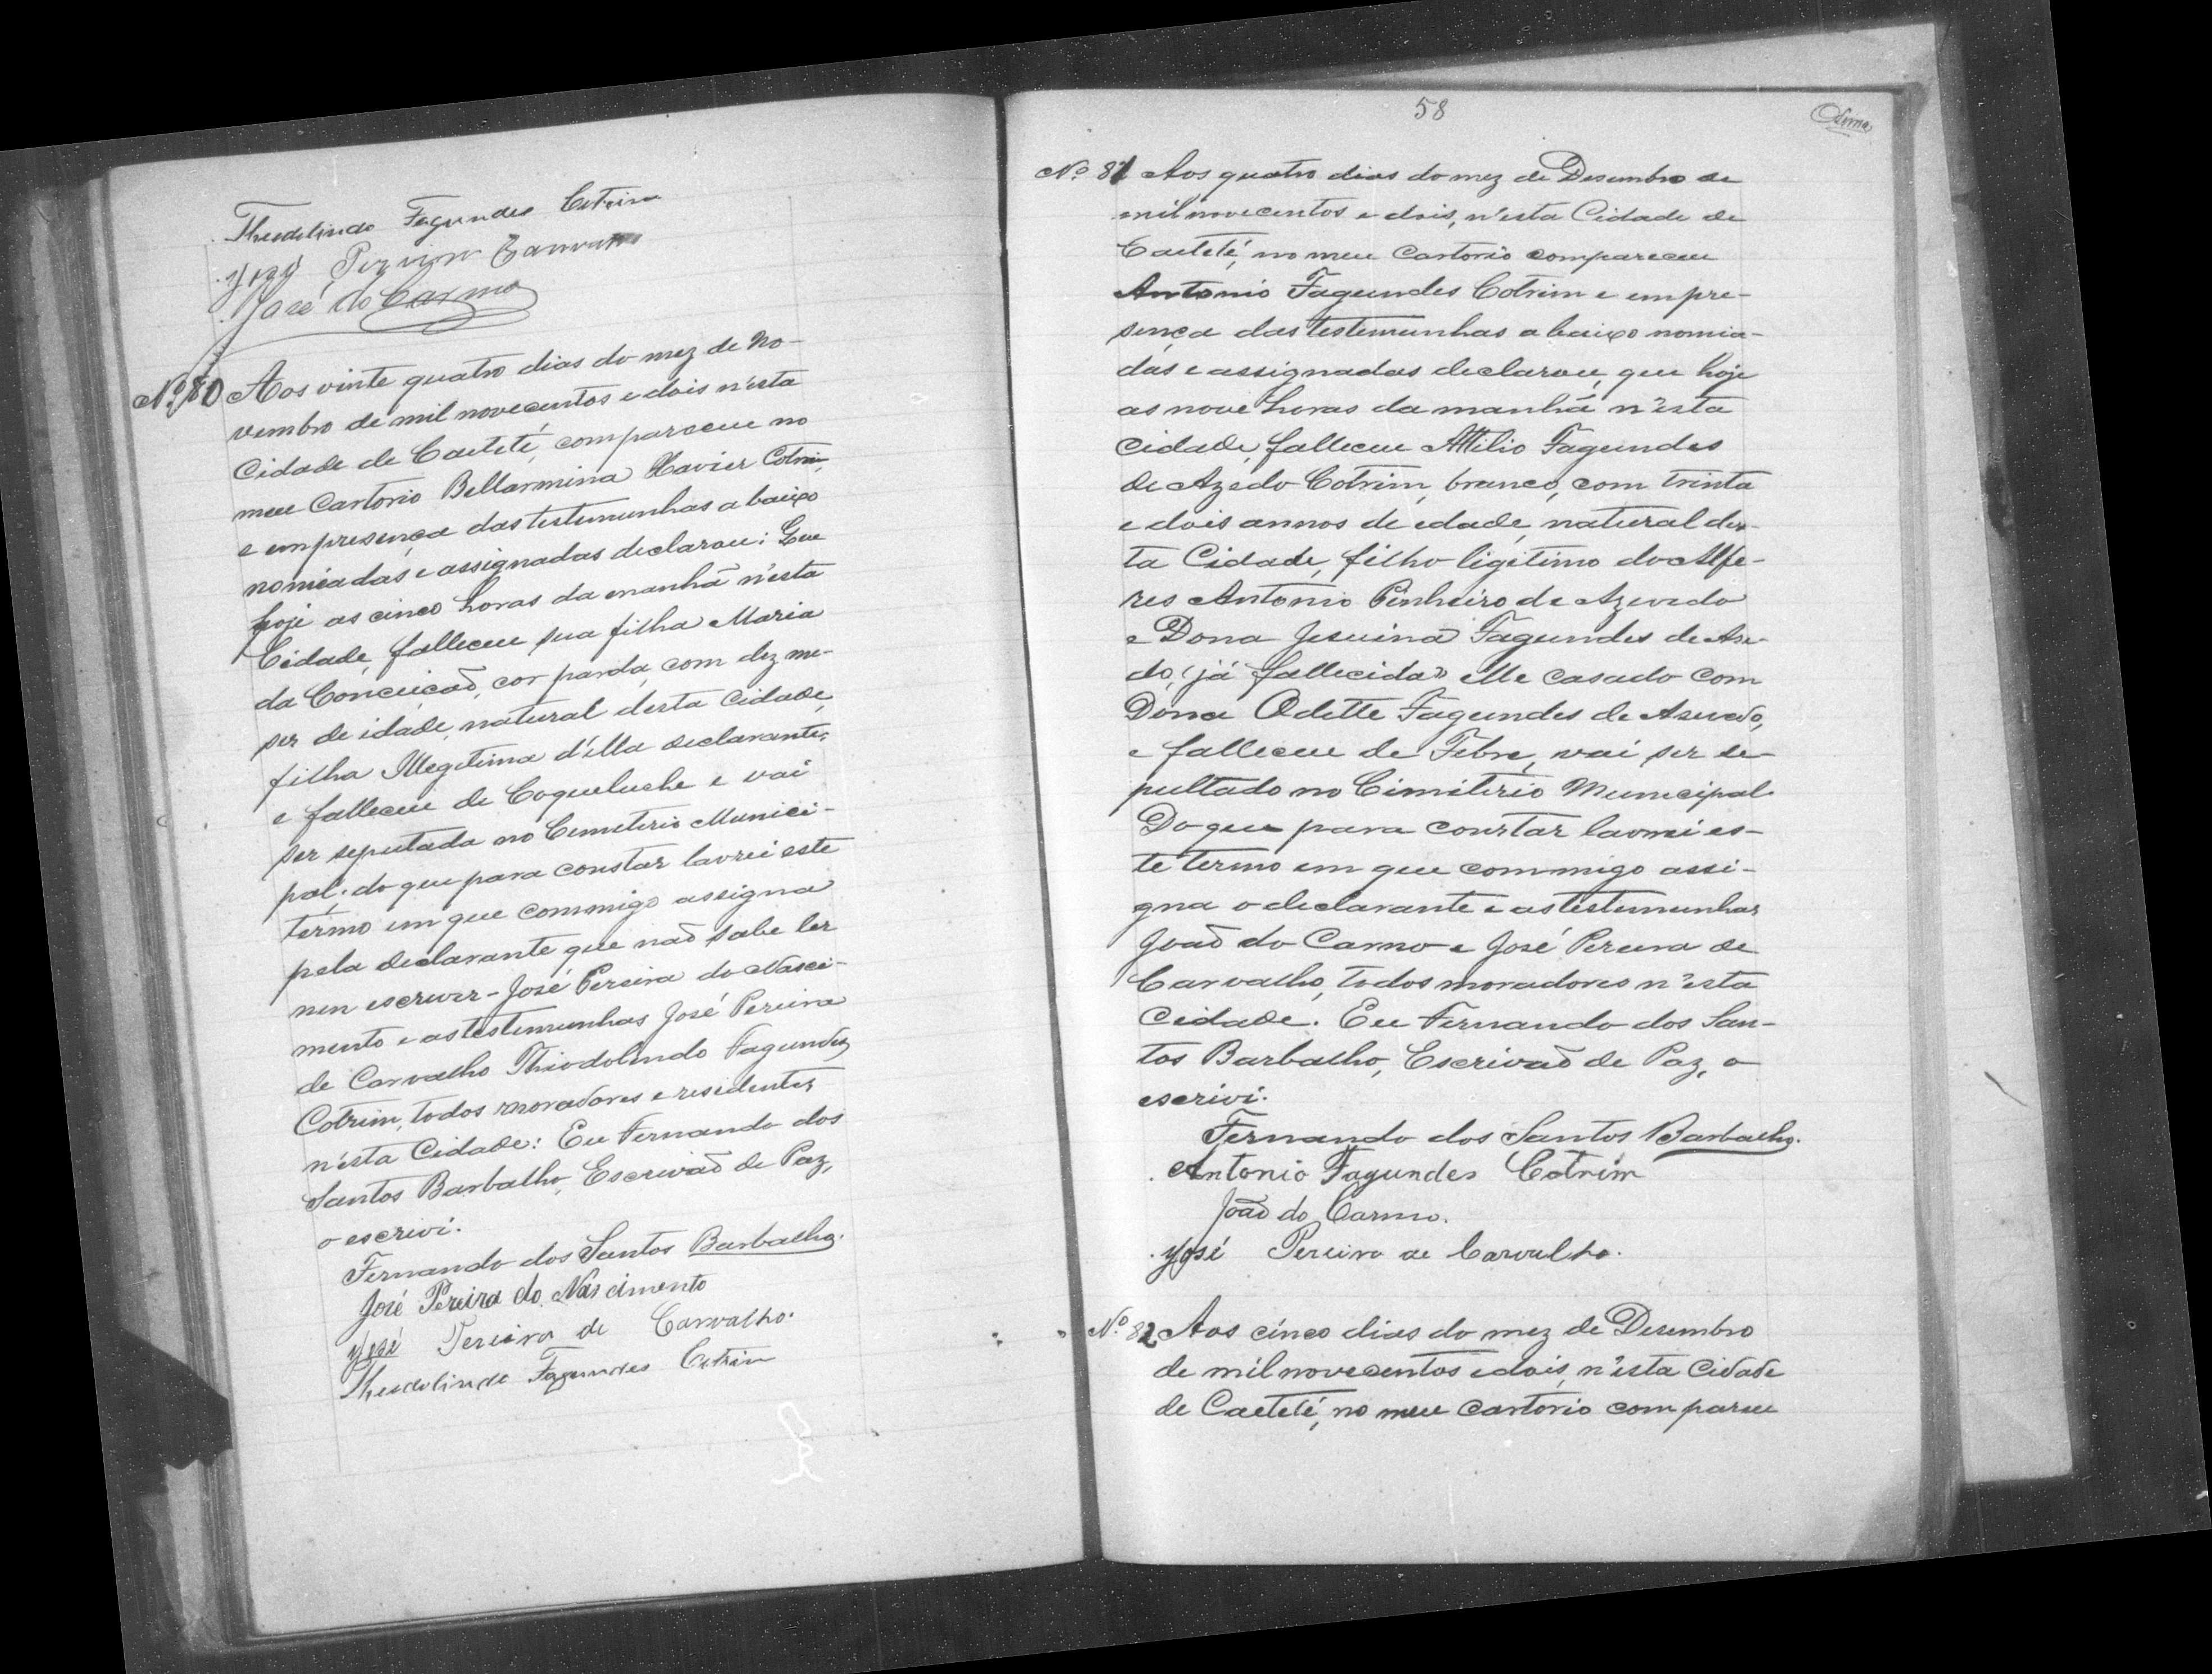 Theodolindo Fagundes Cotrim
José Pereira Carvalho
José do Carmo
Nº 80 Aos vinte quatro dias do mez de No-
vembro de mil novecentos e dois n'esta
Cidade de Caeteté, compareceu no
meu Cartorio Bellarmina Xavier Cotrim,
e em presença das testemunhas abaixo
nomiadas e assignadas declarou: Que
hoje as cinco horas da manhã n'esta
Cidade, falleceu sua filha Maria
da Conceição, cor parda, com dez me-
ses de idade, natural desta Cidade,
filha Illegitima d'ella declarante,
e falleceu de Coqueluche e vai
ser seputada no Cemiterio Munici-
pal; do que para constar lavrei este
termo em que commigo assigna
pela declarante que não sabe ler
nen escrever - José Pereira do Nasci-
mento e as testemunhas José Pereira
de Carvalho Thiodolindo Fagundes
Cotrim, todos moradores e residentes
n'esta Cidade: Eu Fernando dos
Santos Barbalho, Escrivaõ de Paz,
o escrivi.
Fernando dos Santos Barbalho.
José Pereira do Nascimento
José Pereira de Carvalho.
Theodolindo Fagundes Cotrim
58
Nº 81 Aos quatro dias do mez de Desembro de
mil novecentos e dois, n'esta Cidade de
Caeteté, no meu Cartorio compareceu
Antonio Fagundes Cotrim e em pre-
sença das testemunhas abaixo nomia-
das e assignadas declarou, que hoje
as nove horas da manhã n'esta
Cidade, falleceu Attilio Fagundes
de Azedo Cotrim, branco, com trinta
e dois annos de edade, natural des-
ta Cidade, filho ligitimo do Alfe-
res Antonio Pinheiro de Azevedo
e Dona Jesuina Fagundes de Ase-
do, (já fallecida) elle casado com
Dona Odette Fagundes de Asevedo,
e falleceu de Febre, vai ser se-
pultado no Cimiterio Municipal.
Do que para constar lavrei es-
te termo em que commigo assi-
gna o declarante e as testemunhas
Joaõ do Carmo e José Pereira de
Carvalho, todos moradores n'esta
Cidade. Eu Fernando dos San-
tos Barbalho, Escrivaõ de Paz, o
escrivi.
Fernando dos Santos Barbalho.
Antonio Fagundes Cotrim
Joaõ do Carmo.
José Pereira de Carvalho.
Nº 82 Aos cinco dias do mez de Desembro
de mil novecentos e dois, n'esta Cidade
de Caeteté, no meu Cartorio comparceu